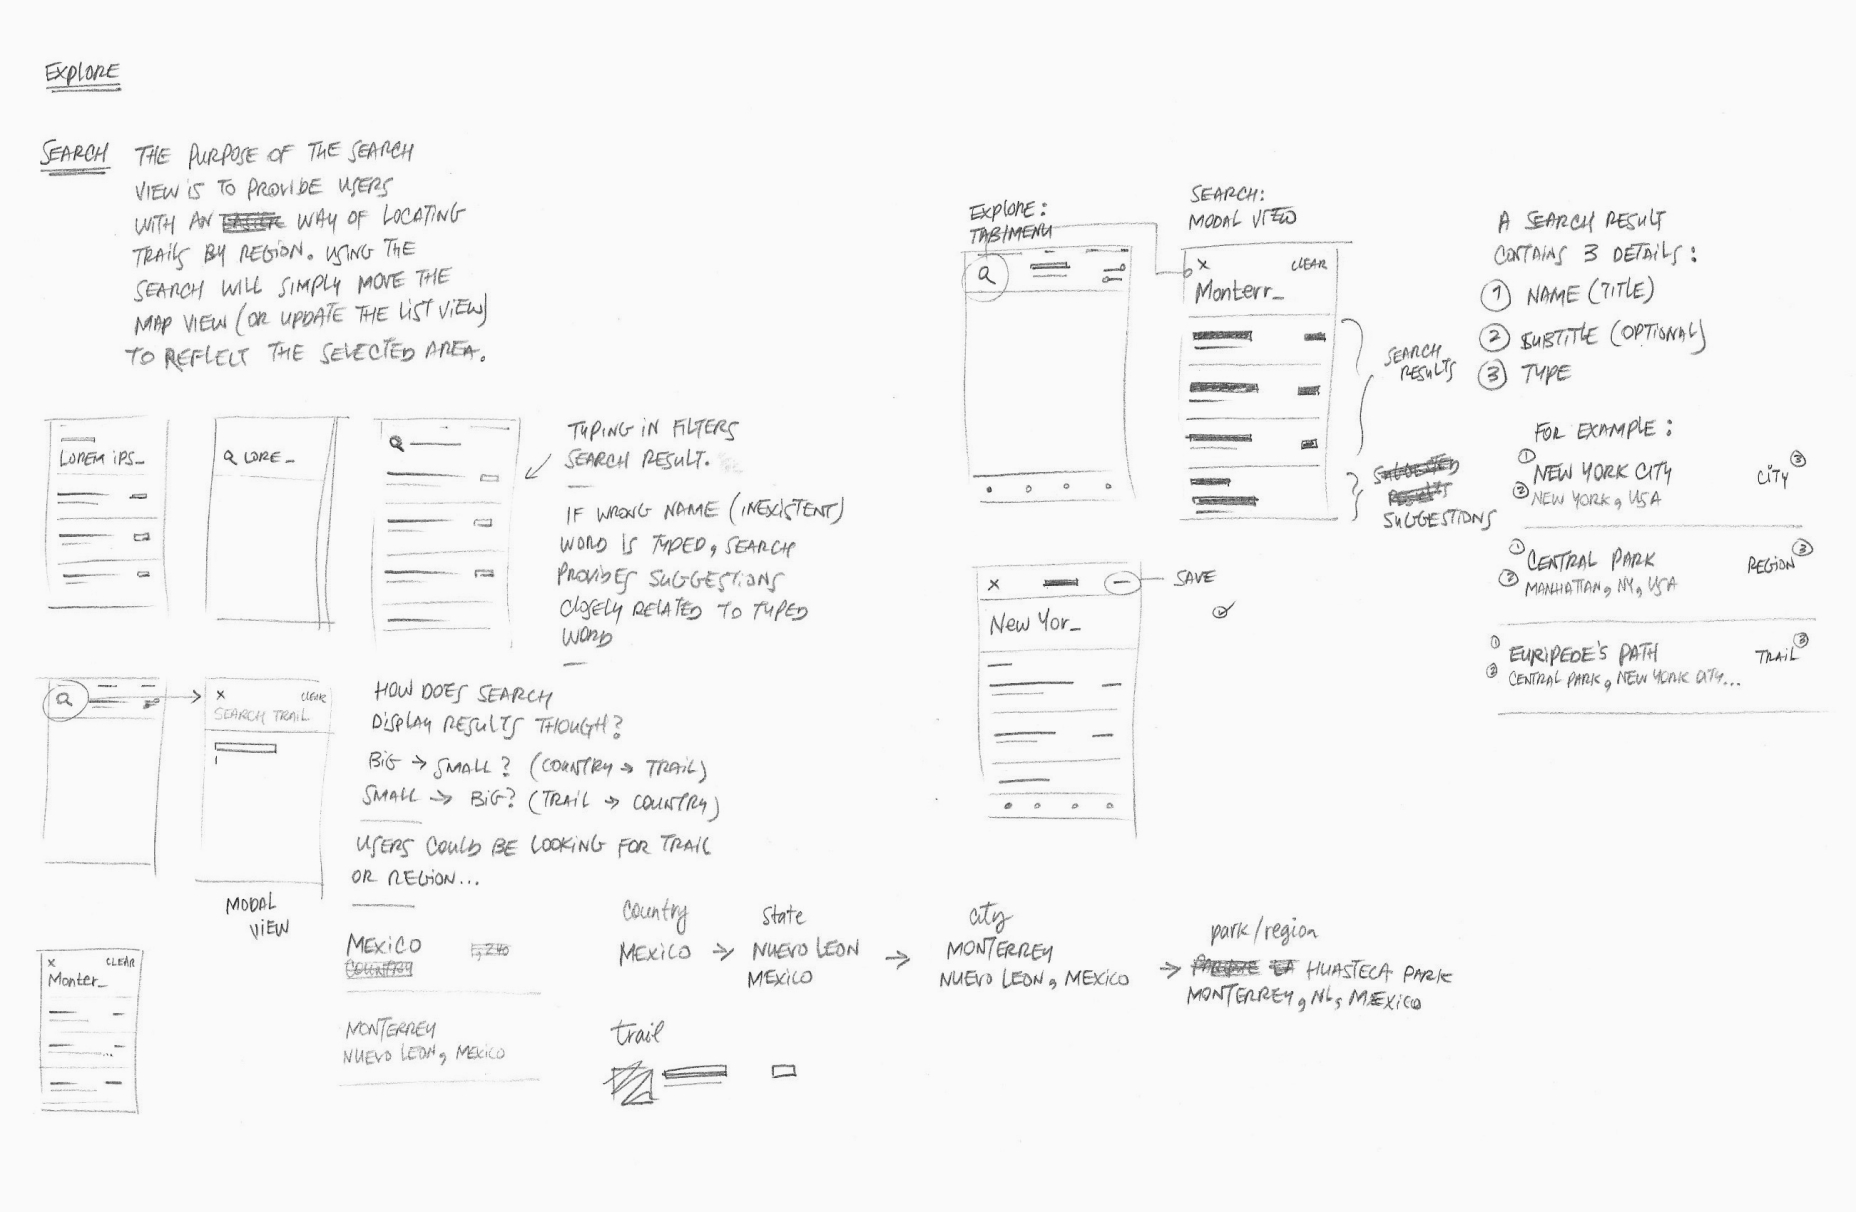 EXPLORE
SEARCH
THE PURPOSE OF THE SEARCH
VIEW IS TO PROVIDE USERS
WITH AN EASIER WAY OF LOCATING
TRAILS BY REGION. USING THE
SEARCH WILL SIMPLY MOVE THE
MAP VIEW (OR UPDATE THE LIST VIEW)
TO REFLECT THE SELECTED AREA.
LOREM IPS_
LORE_
TYPING IN FILTERS
SEARCH RESULT.
IF WRONG NAME (INEXISTENT)
WORD IS TYPED, SEARCH
PROVIDES SUGGESTIONS
CLOSELY RELATED TO TYPED
WORD
X
CLEAR
SEARCH TRAIL
MODAL
VIEW
HOW DOES SEARCH
DISPLAY RESULTS THOUGH?
BIG → SMALL? (COUNTRY → TRAIL)
SMALL → BIG? (TRAIL → COUNTRY)
USERS COULD BE LOOKING FOR TRAIL
OR REGION...
X
CLEAR
Monter_
MEXICO
COUNTRY
MONTERREY
NUEVO LEON, MEXICO
Country
MEXICO →
State
NUEVO LEON
MEXICO
→
city
MONTERREY
NUEVO LEON, MEXICO
→
park/region
HUASTECA PARK
MONTERREY, NL, MEXICO
trail
EXPLORE:
TAB/MENU
SEARCH:
MODAL VIEW
X
CLEAR
Monterr_
SEARCH
RESULTS
SUGGESTED
RESULTS
SUGGESTIONS
X
SAVE
New Yor_
A SEARCH RESULT
CONTAINS 3 DETAILS:
1 NAME (TITLE)
2 SUBTITLE (OPTIONAL)
3 TYPE
FOR EXAMPLE:
1 NEW YORK CITY CITY 3
2 NEW YORK, USA
1 CENTRAL PARK REGION 3
2 MANHATTAN, NY, USA
1 EURIPEDE'S PATH TRAIL 3
2 CENTRAL PARK, NEW YORK CITY...